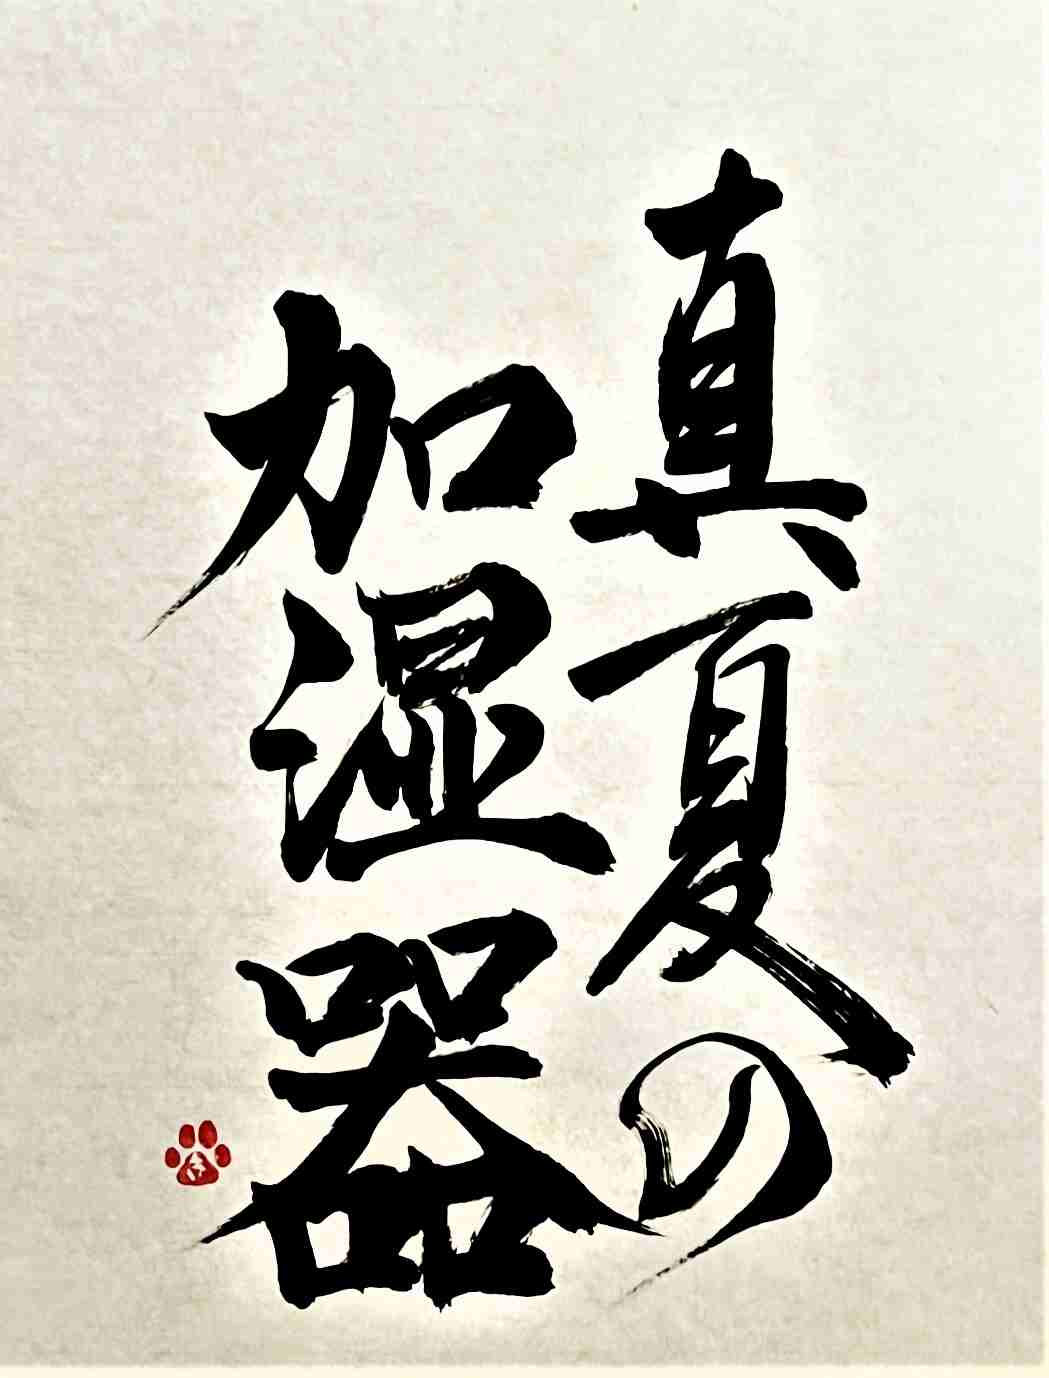 真夏の
加湿器